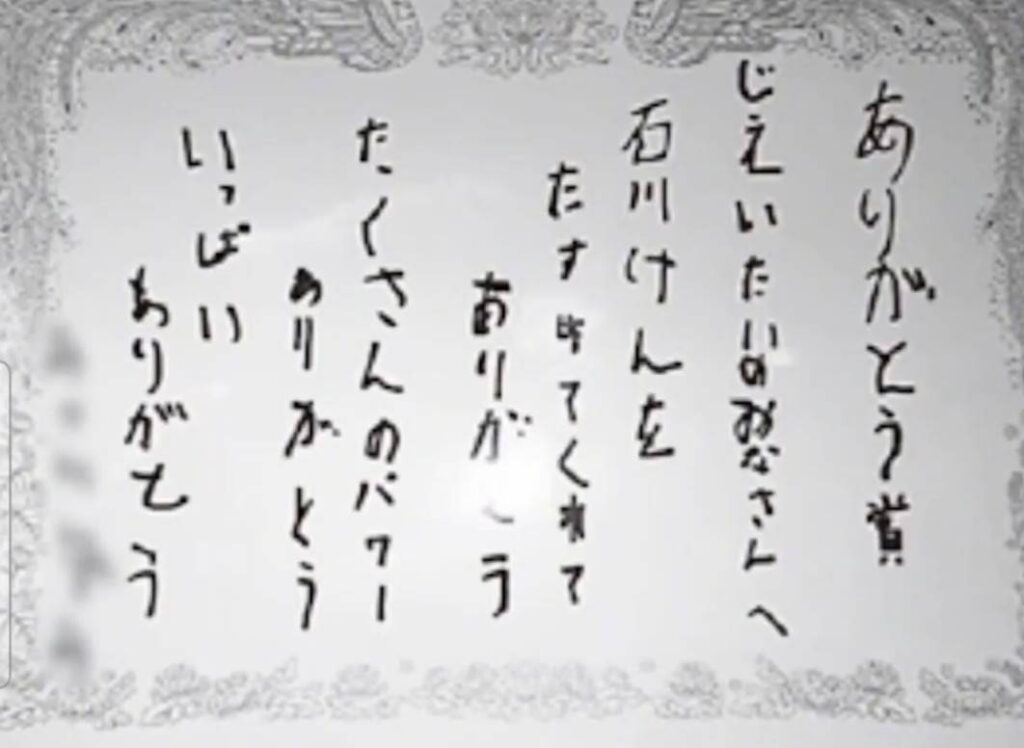 ありがとう賞
じえいたいのみなさんへ
石川けんを
たすけてくれて
ありがとう
たくさんのパワー
ありがとう
いっぱい
ありがとう